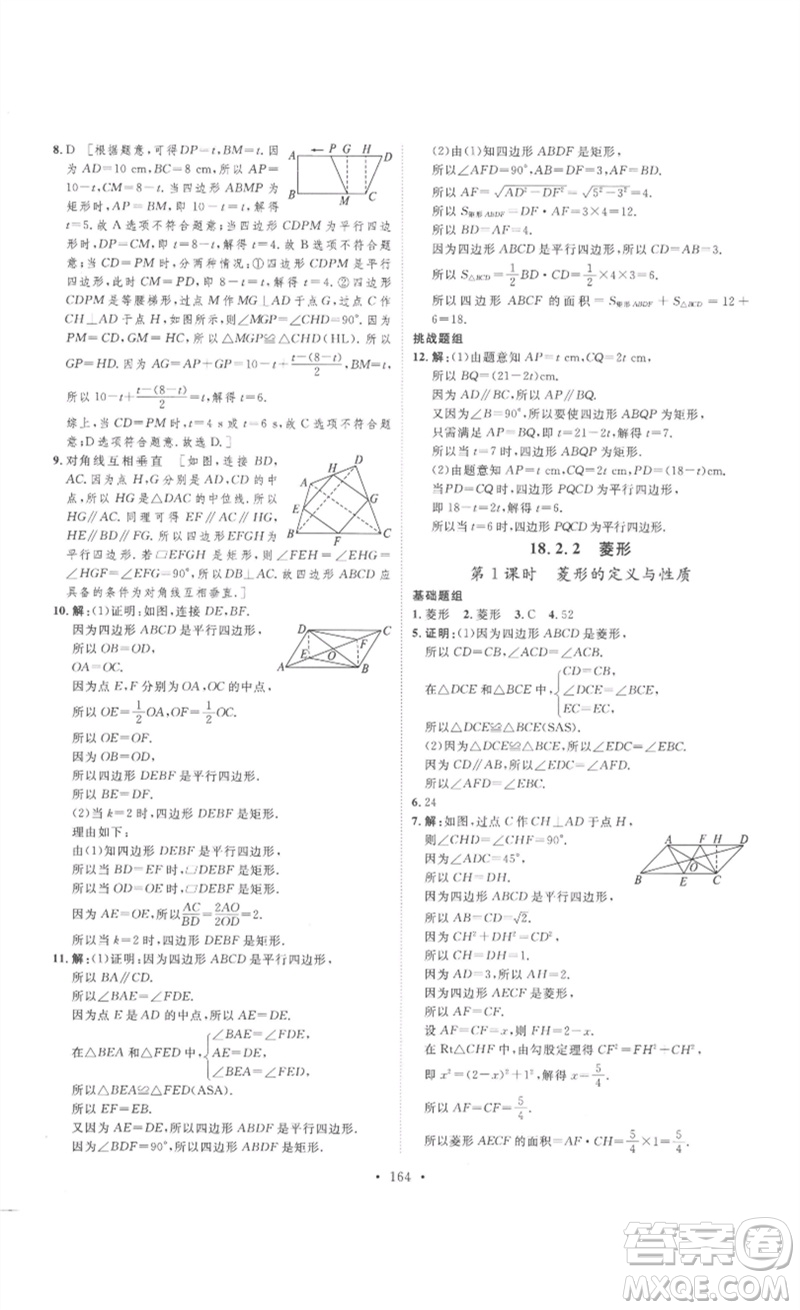 8. D [根据题意,可得DP=t,BM=t.因
为AD=10 cm,BC=8 cm,所以AP=
10-t,CM=8-t.当四边形ABMP为
矩形时,AP=BM,即10-t=t,解得
t=5.故A选项不符合题意;当四边形CDPM为平行四边
形时,DP=CM,即t=8-t,解得t=4.故B选项不符合题
意;当CD=PM时,分两种情况:①四边形CDPM是平行
四边形,此时CM=PD,即8-t=t,解得t=4.②四边形
CDPM是等腰梯形,过点M作MG⊥AD于点G,过点C作
CH⊥AD于点H,则∠MGP=∠CHD=90°.因为PM=
CD,GM=HC,所以△MGP≌△CHD(HL).所以
GP=HD.所以AG=AP+GP=10-t+\frac{t-(8-t)}{2},BM=t.
所以10-t+\frac{t-(8-t)}{2}=t,解得t=6.
综上,当CD=PM时,t=4 s或t=6 s,故C选项不符合题
意;D选项符合题意.故选D.]
9.对角线互相垂直 [如图,连接BD,
AC.因为点H,G分别是AD,CD的中
点,所以HG是△DAC的中位线.所以
HG∥AC.同理可得EF∥AC,
HE∥BD∥FG.所以四边形EFGH为平
行四边形.若▱EFGH是矩形,则∠FEH=∠EHG=
∠HGF=∠EFG=90°,所以AC⊥BD.所以四边形ABCD应
具备的条件为对角线互相垂直.]
10.解:(1)证明:如图,连接DE,BF.
因为四边形ABCD是平行四边形,
所以OB=OD,
OA=OC.
因为点E,F分别为OA,OC的中点,
所以OE=\frac{1}{2}OA,OF=\frac{1}{2}OC.
所以OE=OF.
所以四边形DEBF是平行四边形.
所以BE=DF.
(2)当k=2时,四边形DEBF是矩形.
理由如下:
由(1)知四边形DEBF是平行四边形.
所以当BD=EF时,▱DEBF是矩形.
所以当OD=OE时,▱DEBF是矩形.
因为AE=OE,所以\frac{AC}{BD}=\frac{2AO}{2OD}=2.
所以当k=2时,四边形DEBF是矩形.
11.解:(1)证明:因为四边形ABCD是平行四边形,
所以BA∥CD.
所以∠BAE=∠FDE.
因为点E是AD的中点,所以AE=DE.
在△BEA和△FED中,{∠BAE=∠FDE,
AE=DE,
∠BEA=∠FED,
所以△BEA≌△FED(ASA).
所以EF=EB.
又因为AE=DE,所以四边形ABDF是平行四边形.
因为∠BDF=90°,所以四边形ABDF是矩形.
(2)由(1)知四边形ABDF是矩形,
所以∠AFD=90°,AB=DF=3,AF=BD.
所以AF=\sqrt{AD²-DF²}=\sqrt{5²-3²}=4.
所以S矩形ABDF=DF·AF=3×4=12.
所以BD=AF=4.
因为四边形ABCD是平行四边形,所以CD=AB=3.
所以S△BCD=\frac{1}{2}BD·CD=\frac{1}{2}×4×3=6.
所以四边形ABCF的面积=S矩形ABDF+S△BCD=12+
6=18.
挑战题组
12.解:(1)由题意知AP=t cm,CQ=2t cm,
所以BQ=(21-2t)cm.
因为AD∥BC,所以AP∥BQ.
又因为∠B=90°,所以要使四边形ABQP为矩形,
只需满足AP=BQ,即t=21-2t,解得t=7.
所以当t=7时,四边形ABQP为矩形.
(2)由题意知AP=t cm,PD=(18-t)cm.
当PD=CQ时,四边形PQCD为平行四边形,
即18-t=2t,解得t=6.
所以当t=6时,四边形PQCD为平行四边形.
18.2.2 菱形
第1课时 菱形的定义与性质
基础题组
1.菱形 2.菱形 3.C 4.52
5.证明:(1)因为四边形ABCD是菱形,
所以CD=CB,∠ACD=∠ACB.
在△DCE和△BCE中,{CD=CB,
∠DCE=∠BCE,
EC=EC,
所以△DCE≌△BCE(SAS).
(2)因为△DCE≌△BCE,所以∠EDC=∠EBC.
因为CD∥AB,所以∠AFD=∠EDC.
所以∠AFD=∠EBC.
6.24
7.解:如图,过点C作CH⊥AD于点H,
则∠CHD=∠CHA=90°.
因为∠ADC=45°,
所以CH=DH.
因为CD=\sqrt{2}.
因为CH²+DH²=CD²,
所以CH=DH=1.
因为AD=3,所以AH=2.
因为四边形AECF是菱形,
所以AF=CF.
设AF=CF=x,则FH=2-x.
在Rt△CHF中,由勾股定理得CF²=FH²+CH²,
即x²=(2-x)²+1²,解得x=\frac{5}{4}.
所以AF=CF=\frac{5}{4}.
所以菱形AECF的面积=AF·CH=\frac{5}{4}×1=\frac{5}{4}.
• 164 •
答案卷
MXQE.COM